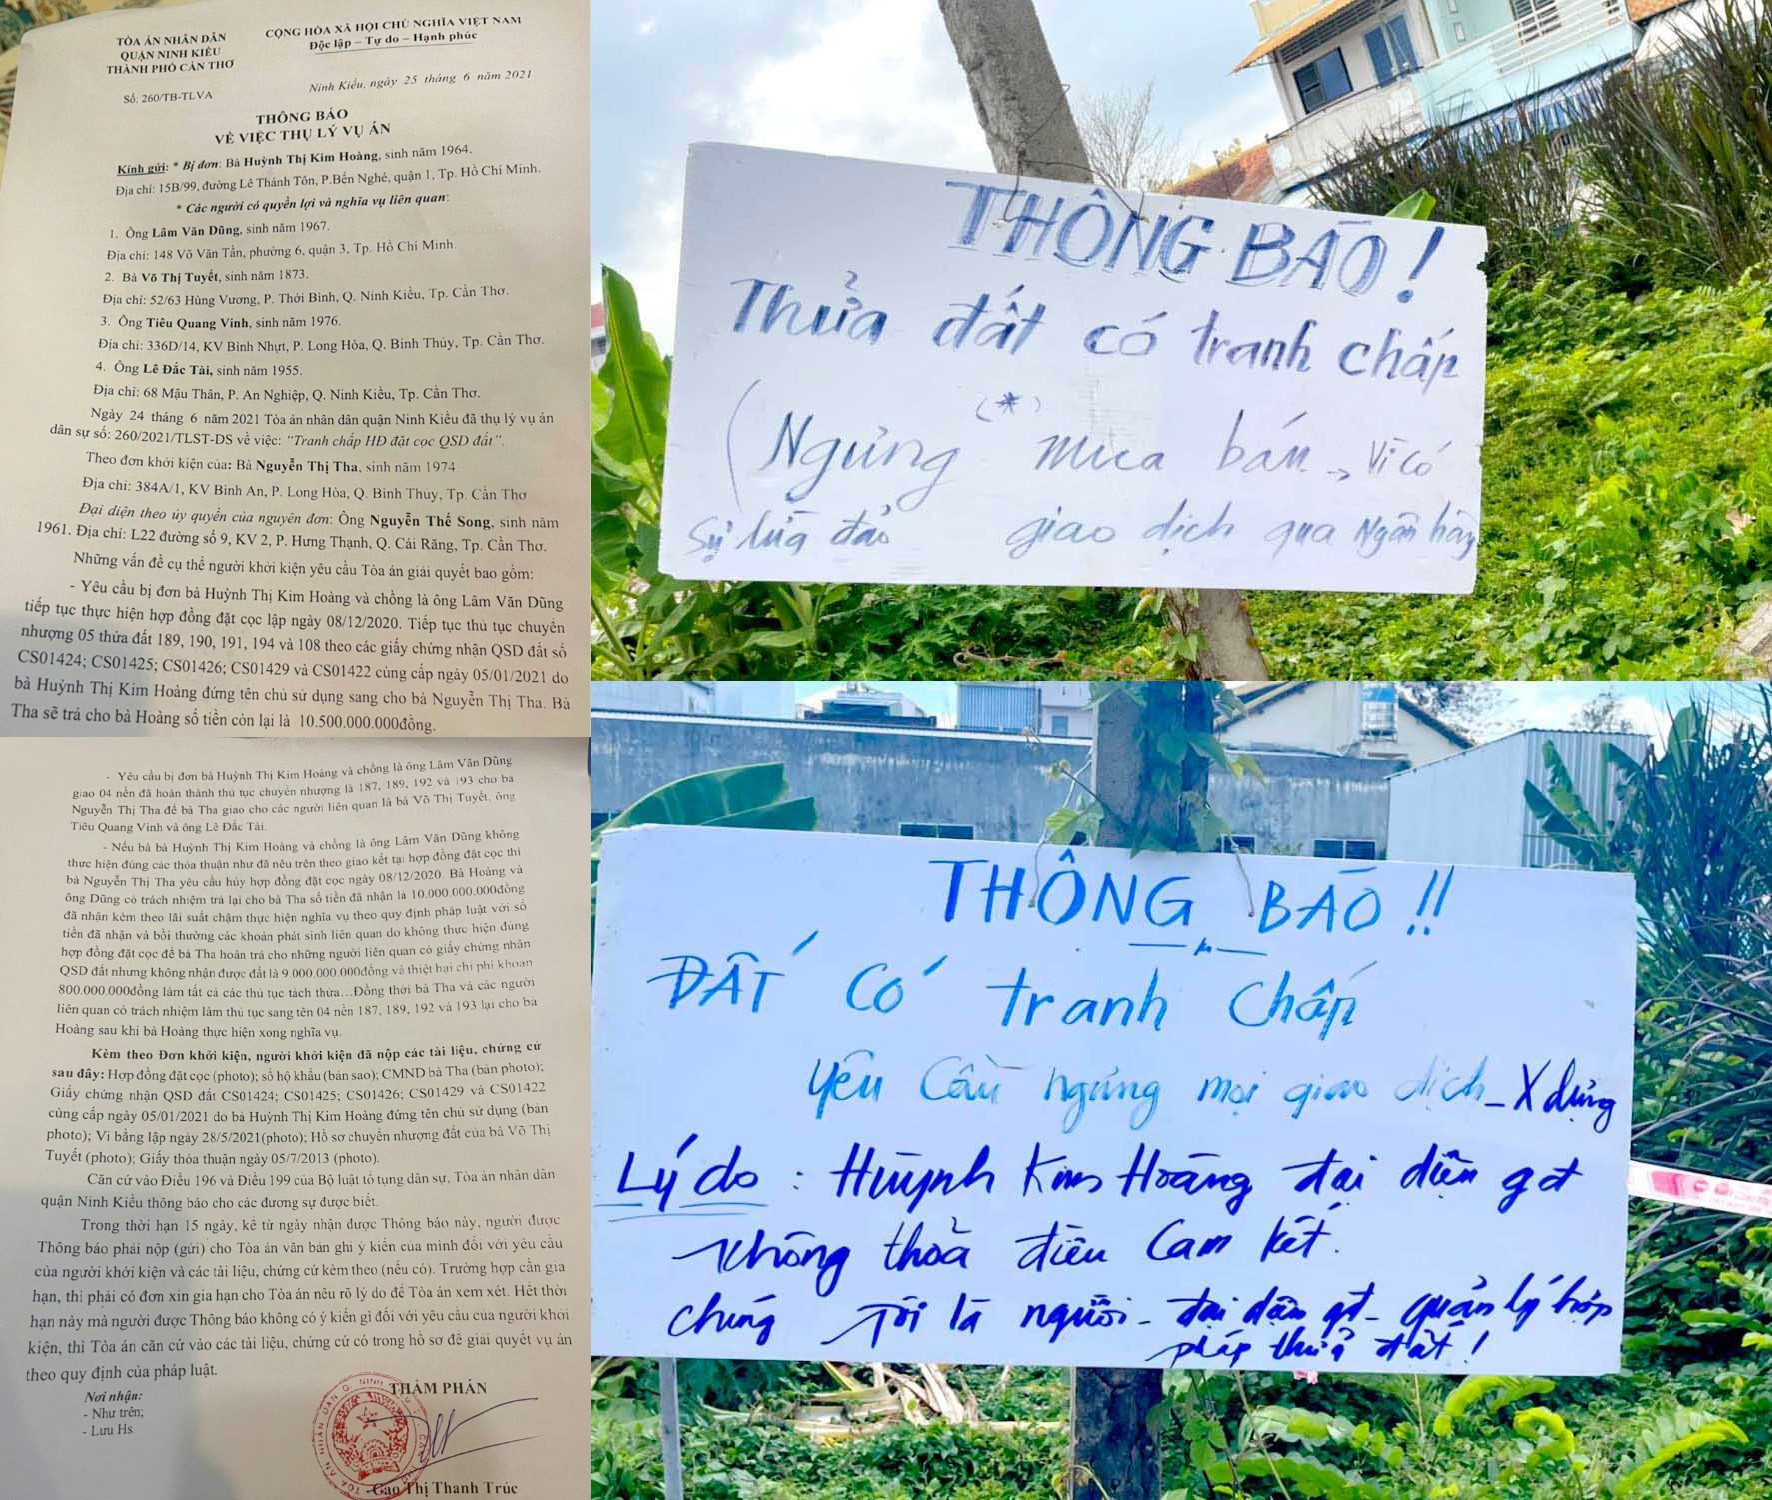 TÒA ÁN NHÂN DÂN
QUẬN NINH KIỀU
THÀNH PHỐ CẦN THƠ
CỘNG HÒA XÃ HỘI CHỦ NGHĨA VIỆT NAM
Độc lập – Tự do – Hạnh phúc
Số: 260/TB-TLVA
Ninh Kiều, ngày 25 tháng 6 năm 2021
THÔNG BÁO
VỀ VIỆC THỤ LÝ VỤ ÁN
Kính gửi: * Bị đơn: Bà Huỳnh Thị Kim Hoàng, sinh năm 1964.
Địa chỉ: 15B/99, đường Lê Thánh Tôn, P.Bến Nghé, quận 1, Tp. Hồ Chí Minh.
* Các người có quyền lợi và nghĩa vụ liên quan:
1. Ông Lâm Văn Dũng, sinh năm 1967.
Địa chỉ: 148 Võ Văn Tần, phường 6, quận 3, Tp. Hồ Chí Minh.
2. Bà Võ Thị Tuyết, sinh năm 1873.
Địa chỉ: 52/63 Hùng Vương, P. Thới Bình, Q. Ninh Kiều, Tp. Cần Thơ.
3. Ông Tiêu Quang Vinh, sinh năm 1976.
Địa chỉ: 336D/14, KV Bình Nhựt, P. Long Hòa, Q. Bình Thủy, Tp. Cần Thơ.
4. Ông Lê Đắc Tài, sinh năm 1955.
Địa chỉ: 68 Mậu Thân, P. An Nghiệp, Q. Ninh Kiều, Tp. Cần Thơ.
Ngày 24 tháng 6 năm 2021 Tòa án nhân dân quận Ninh Kiều đã thụ lý vụ án
dân sự số: 260/2021/TLST-DS về việc: “Tranh chấp HĐ đặt cọc QSD đất”.
Theo đơn khởi kiện của: Bà Nguyễn Thị Tha, sinh năm 1974.
Địa chỉ: 384A/1, KV Bình An, P. Long Hòa, Q. Bình Thủy, Tp. Cần Thơ
Đại diện theo ủy quyền của nguyên đơn: Ông Nguyễn Thế Song, sinh năm
1961. Địa chỉ: L22 đường số 9, KV 2, P. Hưng Thạnh, Q. Cái Răng, Tp. Cần Thơ.
Những vấn đề cụ thể người khởi kiện yêu cầu Tòa án giải quyết bao gồm:
- Yêu cầu bị đơn bà Huỳnh Thị Kim Hoàng và chồng là ông Lâm Văn Dũng
tiếp tục thực hiện hợp đồng đặt cọc lập ngày 08/12/2020. Tiếp tục thủ tục chuyển
nhượng 05 thửa đất 189, 190, 191, 194 và 108 theo các giấy chứng nhận QSD đất số
CS01424; CS01425; CS01426; CS01429 và CS01422 cùng cấp ngày 05/01/2021 do
bà Huỳnh Thị Kim Hoàng đứng tên chủ sử dụng sang cho bà Nguyễn Thị Tha. Bà
Tha sẽ trả cho bà Hoàng số tiền còn lại là 10.500.000.000đồng.
- Yêu cầu bị đơn bà Huỳnh Thị Kim Hoàng và chồng là ông Lâm Văn Dũng
giao 04 nền đã hoàn thành thủ tục chuyển nhượng là 187, 189, 192 và 193 cho bà
Nguyễn Thị Tha để bà Tha giao cho các người liên quan là bà Võ Thị Tuyết, ông
Tiêu Quang Vinh và ông Lê Đắc Tài.
- Nếu bà bà Huỳnh Thị Kim Hoàng và chồng là ông Lâm Văn Dũng không
thực hiện đúng các thỏa thuận như đã nêu trên theo giao kết tại hợp đồng đặt cọc thì
bà Nguyễn Thị Tha yêu cầu hủy hợp đồng đặt cọc ngày 08/12/2020. Bà Hoàng và
ông Dũng có trách nhiệm trả lại cho bà Tha số tiền đã nhận là 10.000.000.000đồng
đã nhận kèm theo lãi suất chậm thực hiện nghĩa vụ theo quy định pháp luật với số
tiền đã nhận và bồi thường các khoản phát sinh liên quan do không thực hiện đúng
hợp đồng đặt cọc để bà Tha hoàn trả cho những người liên quan có giấy chứng nhận
QSD đất nhưng không nhận được đất là 9.000.000.000đồng và thiệt hại chi phí khoan
800.000.000đồng làm tất cả các thủ tục tách thửa…Đồng thời bà Tha và các người
liên quan có trách nhiệm làm thủ tục sang tên 04 nền 187, 189, 192 và 193 lại cho bà
Hoàng sau khi bà Hoàng thực hiện xong nghĩa vụ.
Kèm theo Đơn khởi kiện, người khởi kiện đã nộp các tài liệu, chứng cứ
sau đây: Hợp đồng đặt cọc (photo); sổ hộ khẩu (bản sao); CMND bà Tha (bản photo);
Giấy chứng nhận QSD đất CS01424; CS01425; CS01426; CS01429 và CS01422
cùng cấp ngày 05/01/2021 do bà Huỳnh Thị Kim Hoàng đứng tên chủ sử dụng (bản
photo); Vi bằng lập ngày 28/5/2021(photo); Hồ sơ chuyển nhượng đất của bà Võ Thị
Tuyết (photo); Giấy thỏa thuận ngày 05/7/2013 (photo).
Căn cứ vào Điều 196 và Điều 199 của Bộ luật tố tụng dân sự, Tòa án nhân dân
quận Ninh Kiều thông báo cho các đương sự được biết.
Trong thời hạn 15 ngày, kể từ ngày nhận được Thông báo này, người được
Thông báo phải nộp (gửi) cho Tòa án văn bản ghi ý kiến của mình đối với yêu cầu
của người khởi kiện và các tài liệu, chứng cứ kèm theo (nếu có). Trường hợp cần gia
hạn, thì phải có đơn xin gia hạn cho Tòa án nêu rõ lý do để Tòa án xem xét. Hết thời
hạn này mà người được Thông báo không có ý kiến gì đối với yêu cầu của người khởi
kiện, thì Tòa án căn cứ vào các tài liệu, chứng cứ có trong hồ sơ để giải quyết vụ án
theo quy định của pháp luật.
Nơi nhận:
- Như trên;
- Lưu Hs.
THẨM PHÁN
Cao Thị Thanh Trúc
THÔNG BÁO!
Thửa đất có tranh chấp
(*)
(Ngừng mua bán, Vì có
Sự lừa đảo giao dịch qua Ngân hàng
THÔNG BÁO!!
ĐẤT CÓ tranh Chấp
yêu Cầu ngừng mọi giao dịch - X dựng
Lý do: Huỳnh Kim Hoàng đại diện gđ
không thoả điều Cam kết.
chúng Tôi là người - đại diện gđ - quản lý hợp
pháp thửa đất!